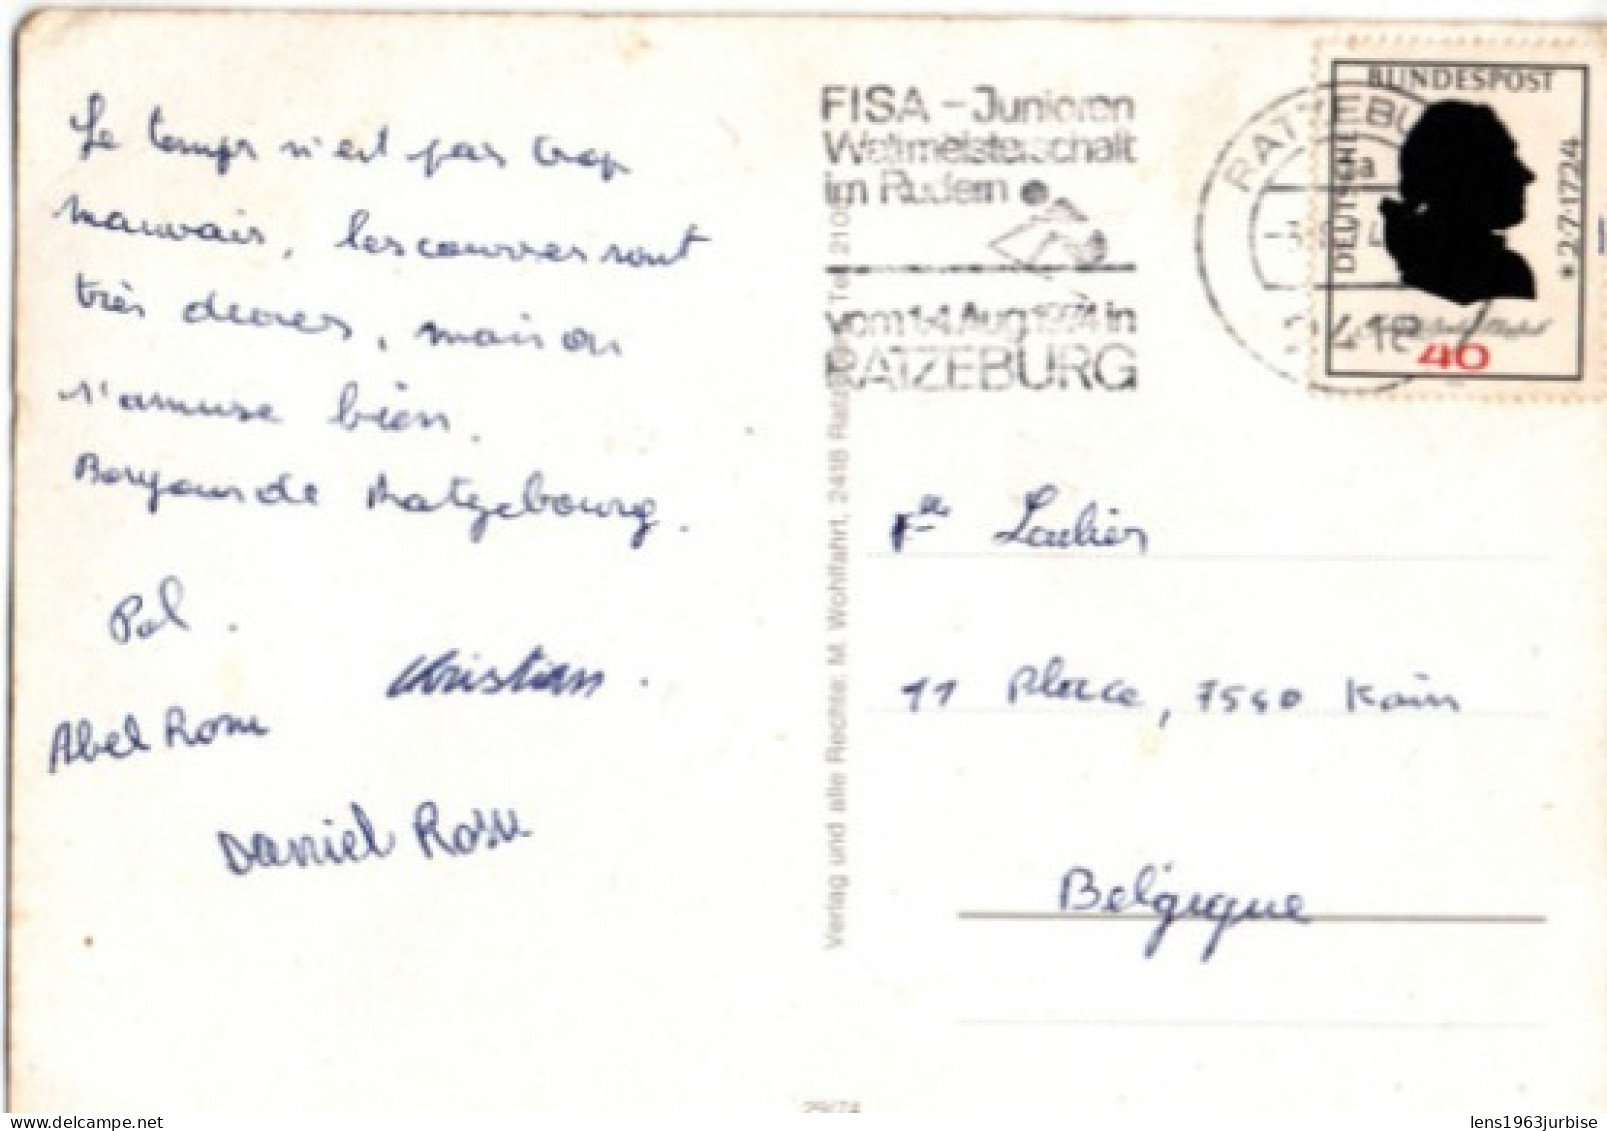 Le temps n'est pas trop
mauvais, les courses sont
très dures, mais on
s'amuse bien.
Bonjour de Ratzebourg.
Pol.
Christian.
Abel Rosu
Daniel Rosu
FISA - Junioren
Weltmeisterschaft
im Rudern
vom 1-4 Aug 1974 in
RATZEBURG
RATZEBU
418
DEUTSCHE
BUNDESPOST
* 2·7·1724
40
Verlag und alle Rechte: M. Wohlfahrt, 2418 Ratzeburg Tel. 210
Flle Laulier
11 Place, 7540 Kain
Belgique
29/74
lens1963jurbise